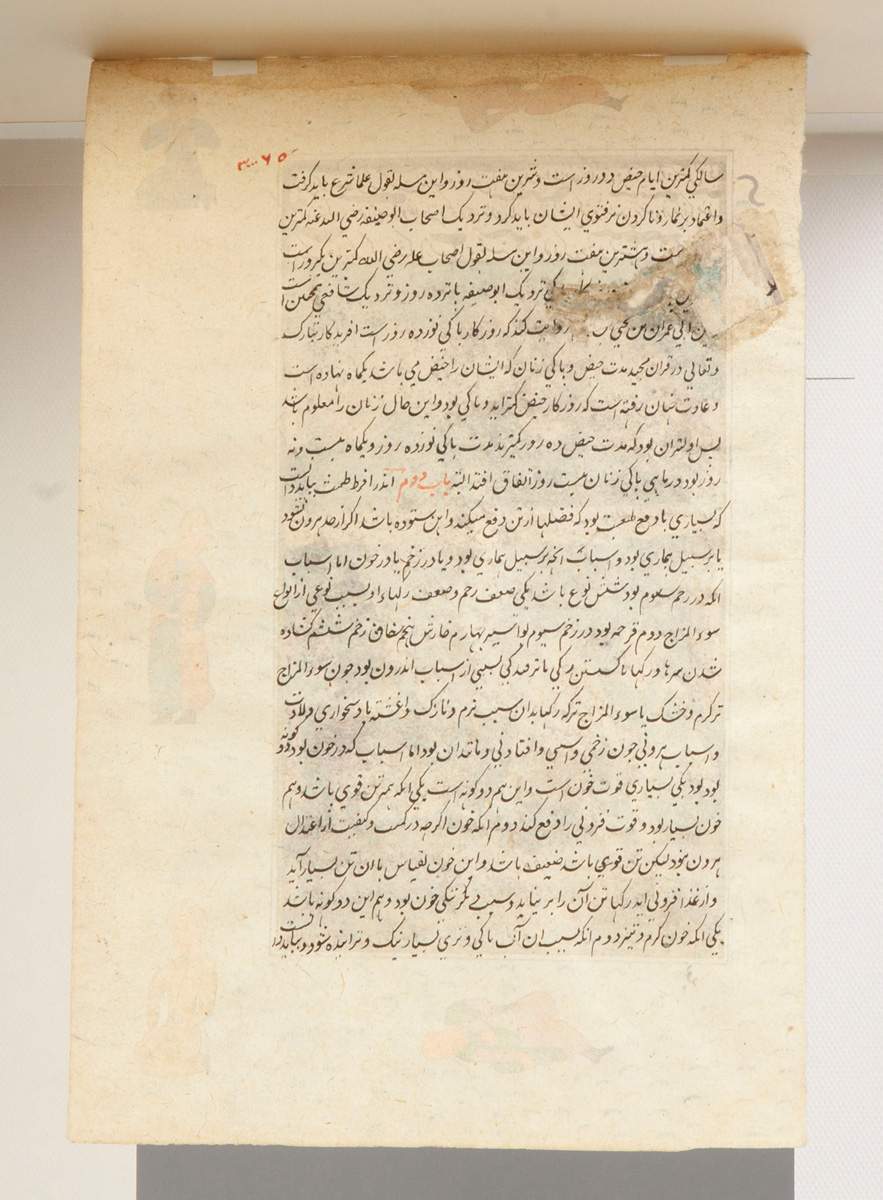 سالکی کمترین ایام حیض دو روز است و بیشترین هفت روز و این مسله بقول علما شرع باید گرفت
و اعتماد بر نماز و نا کردن بر فتوی ایشان باید کرد و نزدیک اصحاب ابو حنیفه رضی الله عنه کمترین
ست و بیشترین هفت روز و این مسله بقول اصحاب علم رضی الله کمترین یکروز است
پاکی نزدیک ابو حنیفه پانزده روز و نزدیک شافعی همچنین است
ابی عمران بن یحیی روایت کند که روزکار پاکی نوزده روز است افریدکار تبارک
و تعالی در قران مجید مدت حیض و پاکی زنان که ایشان را حیض می باشد یکماه نهاده است
و عادت چنان رفته است که روزکار حیض کمتر اید و پاکی بود و این حال زنان را معلوم باشد
پس اولیتر ان بود که مدت حیض ده روز کیرند مدت پاکی نوزده روز و یکماه بیست و نه
روز بود در پاکی زنان بیست روز اتفاق افتد البته باب دوم اندر افراط طمث بباید دانست
که بسیاری با دفع طبیعت بود که فضلها از تن دفع میکند و این ستوده باشد اکر از حد بیرون نشود
یا بر سبیل بیماری بود و اسباب انچه بر سبیل بیماری بود و یا در زخم یا در خون اما اسباب
انکه در رحم بود شش نوع باشد یکی ضعف رحم و ضعف رکها او بسبب نوعی از انواع
سوء المزاج دوم قرحه بود در رحم سیوم بواسیر چهارم خارش پنجم شقاق رحم ششم کشاده
شدن سرها رکها یا کسستن رکی یا ترقیدکی بسببی از اسباب اندرون بود چون سوء المزاج
تر کرم و خشک یا سوء المزاج تر که رکها بدان سبب نرم و نازک و اغشته باد سخواری ولادت
و اسباب بیرونی چون زخمی و اسیبی و افتادنی و مانند ان بود اما اسباب که در خون بود دو کونه
بود یکی بسیاری قوت خون است و این هم دو کونه است یکی انکه همه تن قوی باشد و هم
خون بسیار بود و قوت فزونی را دفع کند دوم انکه خون اکرچه در کمیت و کیفیت از اعتدال
بیرون نبود لیکن تن قوی باشد ضعیف باشد و این خون بقیاس با ان تن بسیار آید
و از غذا فزونی اید رکها تن آن را بر نتابد و سبب دیکر تنکی خون بود و هم این دو کونه باشد
یکی انکه خون کرم و تیز دوم انکه بسبب ان آب ناکی و تری بسیار تنک و ترابنده شود و بباید